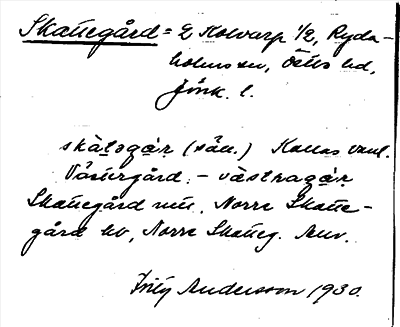 Skattegård = E Kolvarp 1/2, Ryda-
holms sn, Östbo hd,
Jönk. l.
skàtəgar (sån.) Kallas vanl.
Västergård. – västragar
Skattegård nu. Norra Skatte-
gård hv, Norra Skatteg.
Frity Andersson 1930.